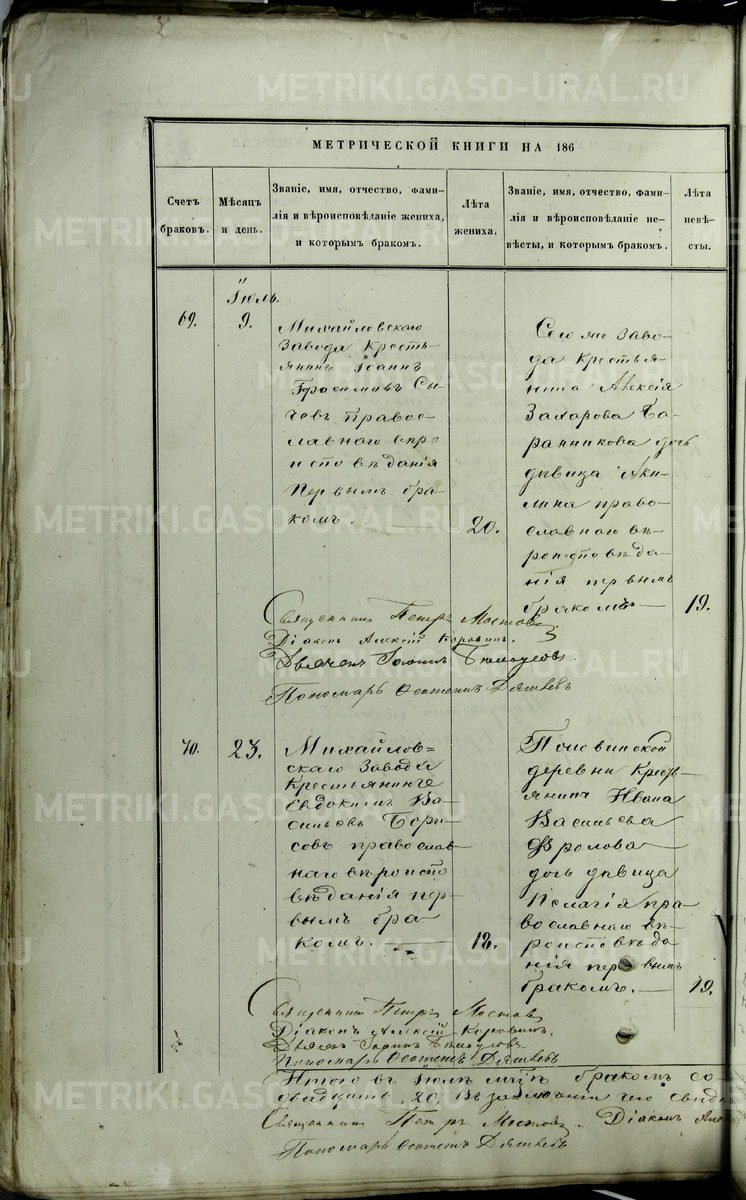 МЕТРИЧЕСКОЙ КНИГИ НА 186
Счетъ
браковъ.
Мѣсяцъ
и день.
Званіе, имя, отчество, фами-
лія и вѣроисповѣданіе жениха,
и которымъ бракомъ.
Лѣта
жениха.
Званіе, имя, отчество, фами-
лія и вѣроисповѣданіе не-
вѣсты, и которымъ бракомъ.
Лѣта
невѣ-
сты.
Іюль.
69.
9.
Михайловскаго
Завода кресть-
янинъ Іоаннъ
Герасимовъ Сы-
чевъ правос-
лавнаго вѣро
исповѣданія
первымъ бра-
комъ.
20.
Сего же Заво-
да крестья-
нина Алексія
Захарова Ба-
ранникова дочь
дѣвица Аки-
лина право-
славнаго вѣ-
роисповѣда-
нія первымъ
бракомъ
19.
Священникъ Петръ Мостовъ
Діаконъ Алексій Коровинъ.
Дьячекъ
Пономарь
70.
23.
Михайлов=
скаго Завода
Крестьянинъ
Евдокимъ Ва-
сильевъ Бори-
совъ православ-
наго вѣроиспо
вѣданія пер-
вымъ бра-
комъ.
18.
деревни Кресть-
янина Ивана
Васильева
Фролова
дочь дѣвица
Пелагія пра
вославнаго вѣ-
роисповѣда
нія первымъ
бракомъ.
19.
Священникъ Петръ Мостовъ
Діаконъ Алексій Коровинъ.
Дьячекъ
Пономарь
Итого въ Іюлѣ бракомъ со
20.
Священникъ Петръ Мостовъ. Діаконъ Алек
Пономарь
METRIKI.GASO-URAL.RU